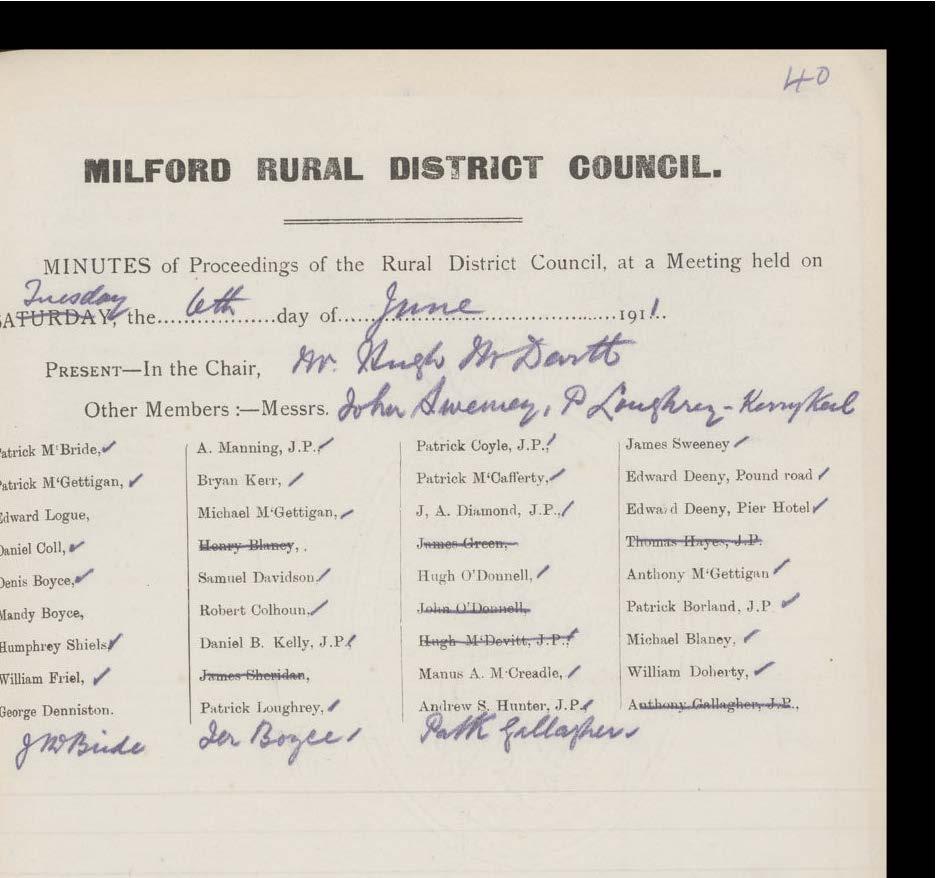 40
MILFORD RURAL DISTRICT COUNCIL.
MINUTES of Proceedings of the Rural District Council, at a Meeting held on
Tuesday
ATURDAY, the....6th....day of....June....1911.
PRESENT—In the Chair, Mr. Hugh McDevitt
Other Members :—Messrs. John Sweeney, P Loughrey - Kerrykeel
atrick M'Bride, A. Manning, J.P., Patrick Coyle, J.P., James Sweeney
atrick M'Gettigan, Bryan Kerr, Patrick M'Cafferty, Edward Deeny, Pound road
dward Logue, Michael M'Gettigan, J, A. Diamond, J.P., Edward Deeny, Pier Hotel
Daniel Coll, Henry Blaney, . James Green, Thomas Hayes, J.P.
Denis Boyce, Samuel Davidson Hugh O'Donnell, Anthony M'Gettigan
Mandy Boyce, Robert Colhoun, John O'Donnell, Patrick Borland, J.P.
Humphrey Shiels Daniel B. Kelly, J.P. Hugh M'Devitt, J.P., Michael Blaney,
William Friel, James Sheridan, Manus A. M'Creadle, William Doherty,
George Denniston. Patrick Loughrey, Andrew S. Hunter, J.P. Anthony Gallagher, J.P.,
J McBride Jer Boyce Patk Gallagher